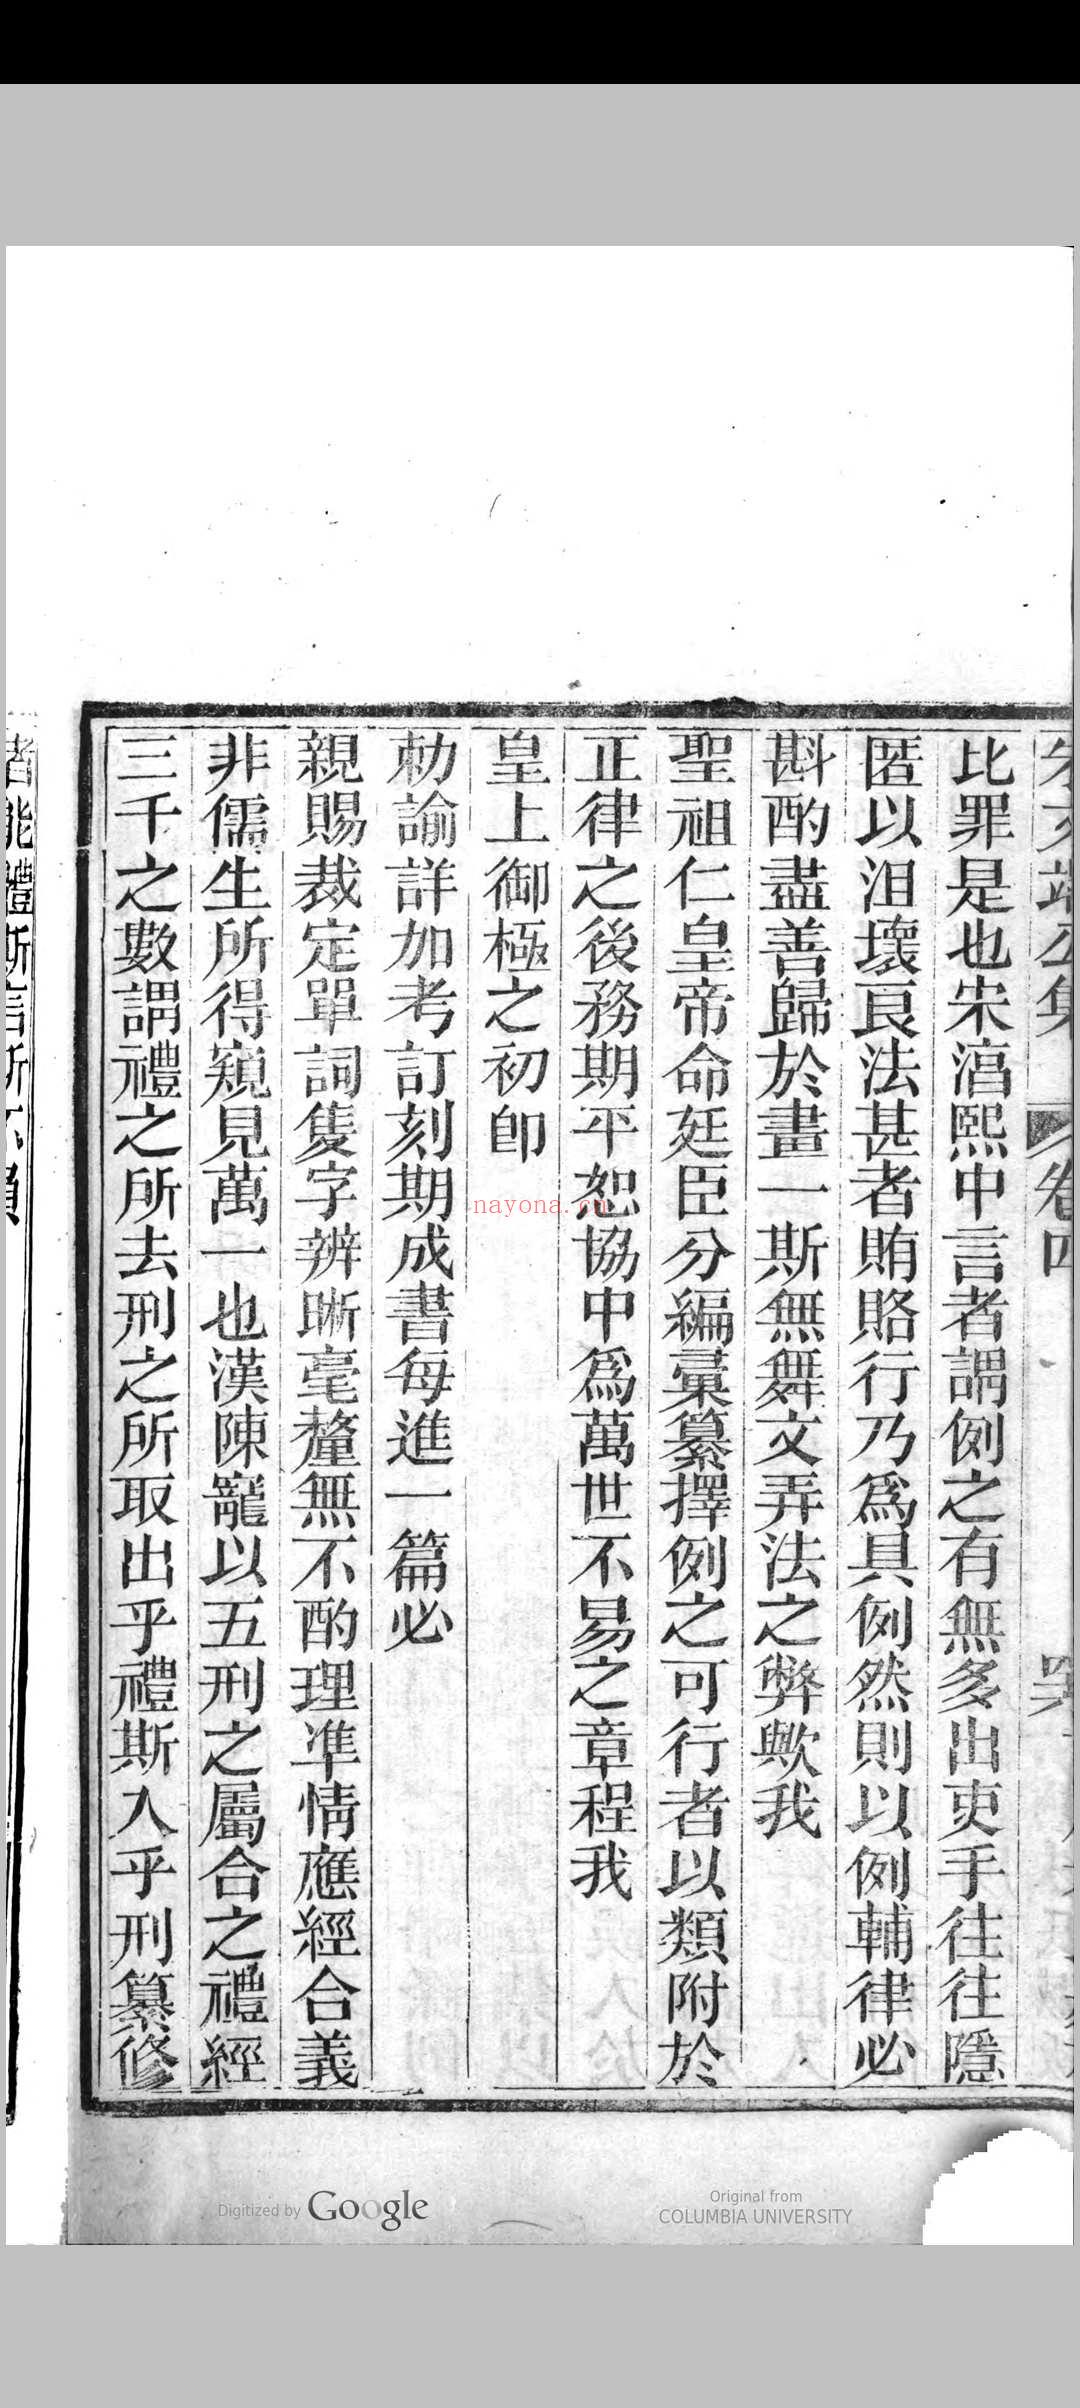 比罪是也宋湻熙中言者謂例之有無多出吏手往往隱
匿以沮壞良法甚者賄賂行乃爲具例然則以例輔律必
斟酌盡善歸於畫一斯無舞文弄法之弊歟我
聖祖仁皇帝命廷臣分編彙纂擇例之可行者以類附於
正律之後務期平恕協中爲萬世不易之章程我
皇上御極之初卽
勅諭詳加考訂刻期成書每進一篇必
親賜裁定單詞隻字辨晰毫釐無不酌理準情應經合義
非儒生所得窺見萬一也漢陳寵以五刑之屬合之禮經
三千之數謂禮之所去刑之所取出乎禮斯入乎刑纂修
nayona.cn
Digitized by Google
Original from
COLUMBIA UNIVERSITY